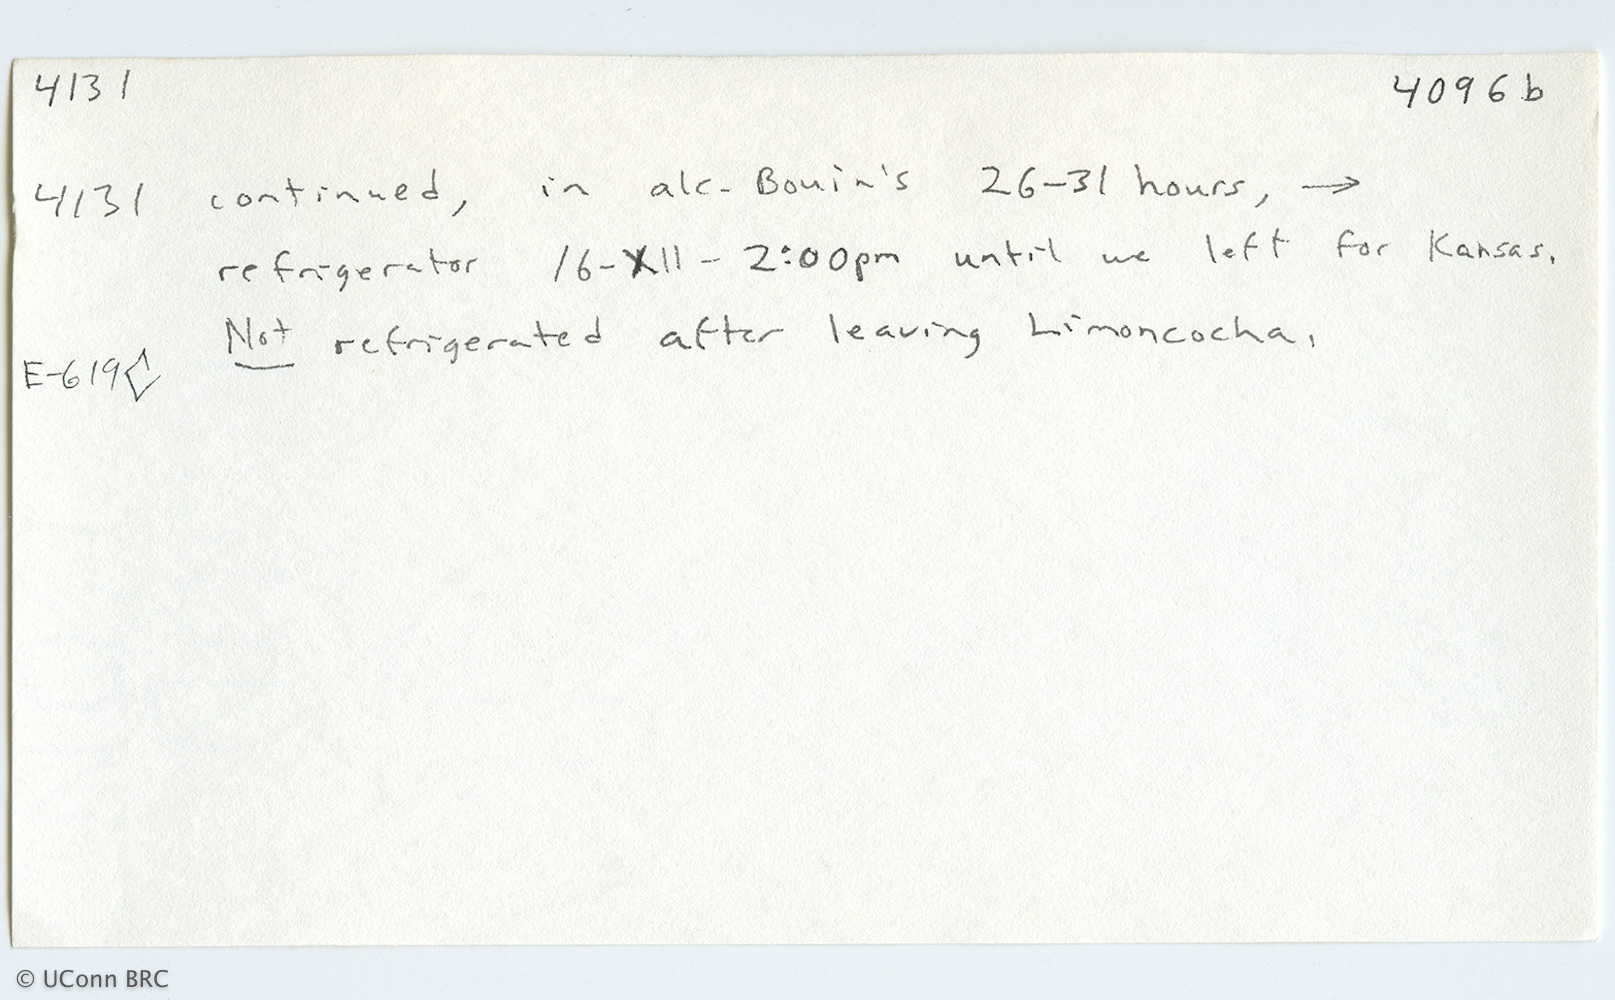 4131 4096b
4131 continued, in alc-Bouin's 26-31 hours, →
refrigerator 16-XII - 2:00pm until we left for Kansas.
Not refrigerated after leaving Limoncocha.
E-619
© UConn BRC